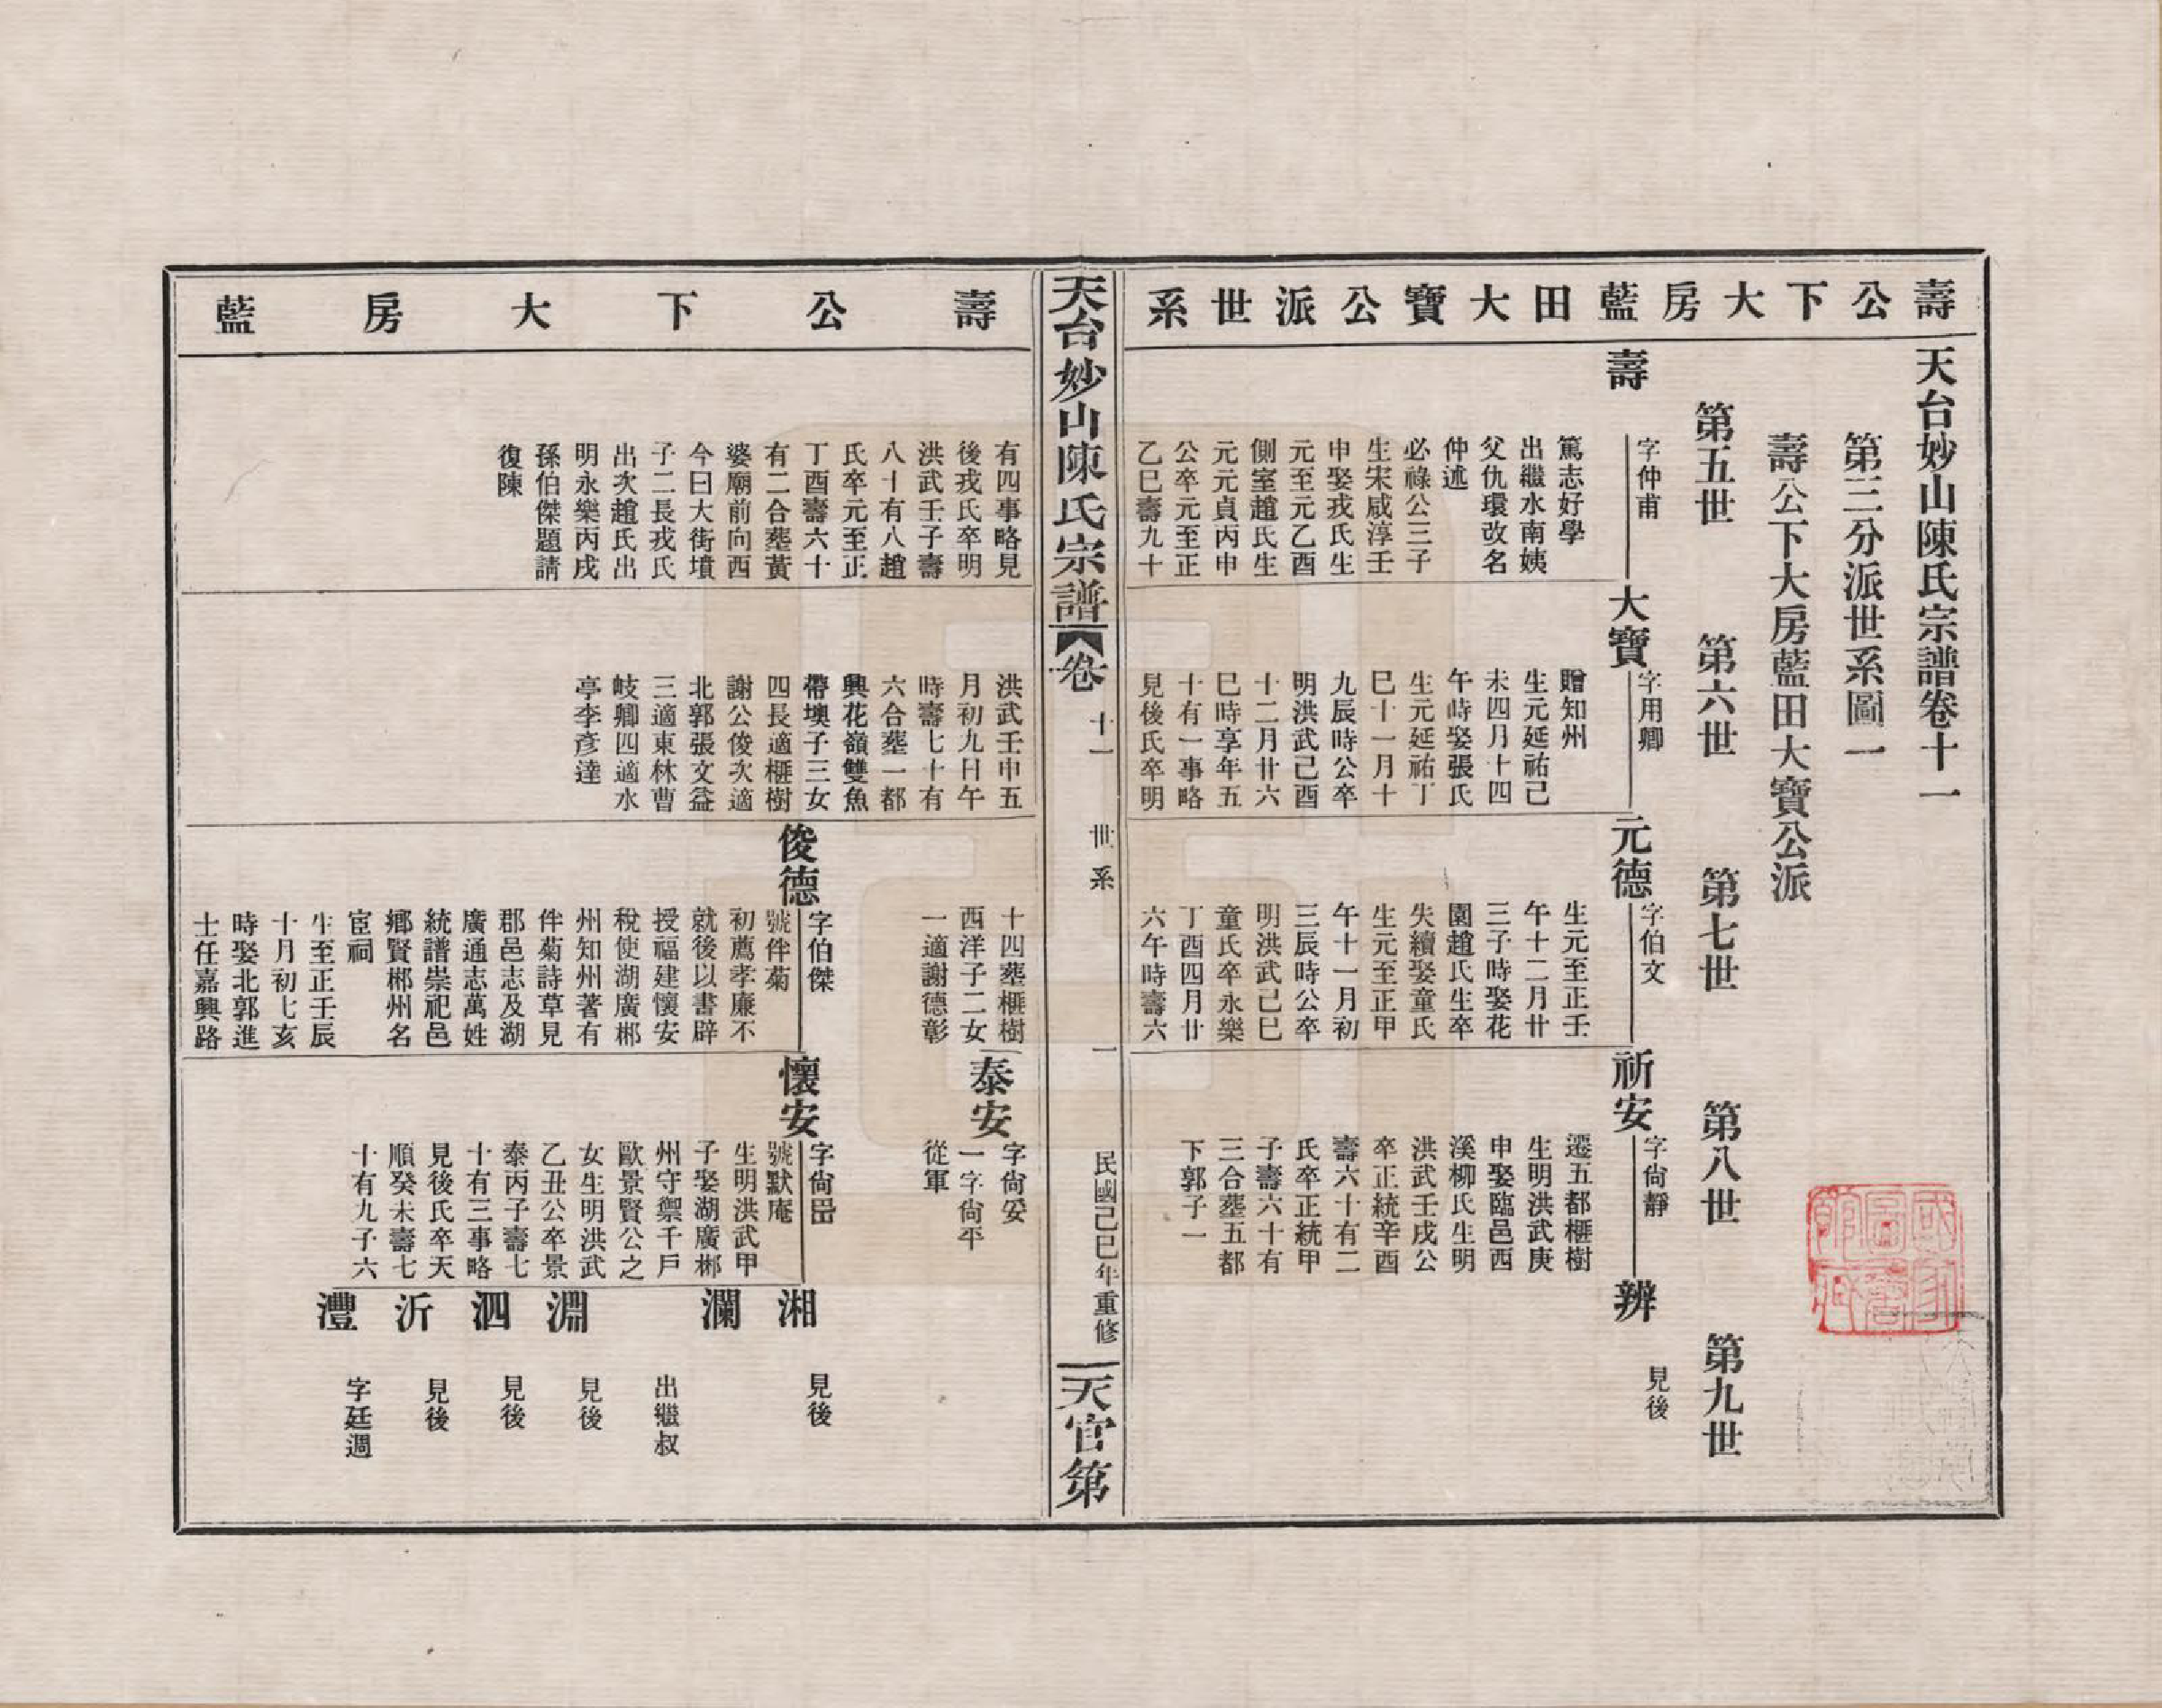 壽公下大房藍田大寶公派世系
天台妙山陳氏宗譜卷十一
第三分派世系圖一
壽公下大房藍田大寶公派
第五世
第六世
第七世
第八世
第九世
壽
字仲甫
篤志好學
出繼水南姨
父仇環改名
仲述
必祿公三子
生宋咸淳壬
申娶戎氏生
元至元乙酉
側室趙氏生
元元貞丙申
公卒元至正
乙巳壽九十
大寶
字用卿
贈知州
生元延祐己
未四月十四
午時娶張氏
生元延祐丁
巳十一月十
九辰時公卒
明洪武己酉
十二月廿六
巳時享年五
十有一事略
見後氏卒明
元德
字伯文
生元至正壬
午十二月廿
三子時娶花
園趙氏生卒
失續娶童氏
生元至正甲
午十一月初
三辰時公卒
明洪武己巳
童氏卒永樂
丁酉四月廿
六午時壽六
祈安
字尙靜
遷五都榧樹
生明洪武庚
申娶臨邑西
溪柳氏生明
洪武壬戌公
卒正統辛酉
壽六十有二
氏卒正統甲
子壽六十有
三合塟五都
下郭子一
辨
見後
天台妙山陳氏宗譜
卷
十一
世系
一
民國己巳年重修
天官第
壽公下大房藍
有四事略見
後戎氏卒明
洪武壬子壽
八十有八趙
氏卒元至正
丁酉壽六十
有二合塟黃
婆廟前向西
今曰大街墳
子二長戎氏
出次趙氏出
明永樂丙戌
孫伯傑題請
復陳
洪武壬申五
月初九日午
時壽七十有
六合塟一都
興花嶺雙魚
帶墺子三女
四長適榧樹
謝公俊次適
北郭張文益
三適東林曹
岐卿四適水
亭李彥達
十四塟榧樹
西洋子二女
一適謝德彰
俊德
字伯傑
號伴菊
初薦孝廉不
就後以書辟
授福建懷安
稅使湖廣郴
州知州著有
伴菊詩草見
郡邑志及湖
廣通志萬姓
統譜崇祀邑
鄕賢郴州名
宦祠
生至正壬辰
十月初七亥
時娶北郭進
士任嘉興路
泰安
字尙妥
一字尙平
從軍
懷安
字尙嵒
號默庵
生明洪武甲
子娶湖廣郴
州守禦千戶
歐景賢公之
女生明洪武
乙丑公卒景
泰丙子壽七
十有三事略
見後氏卒天
順癸未壽七
十有九子六
湘
見後
瀾
出繼叔
淵
見後
泗
見後
沂
見後
灃
字廷週